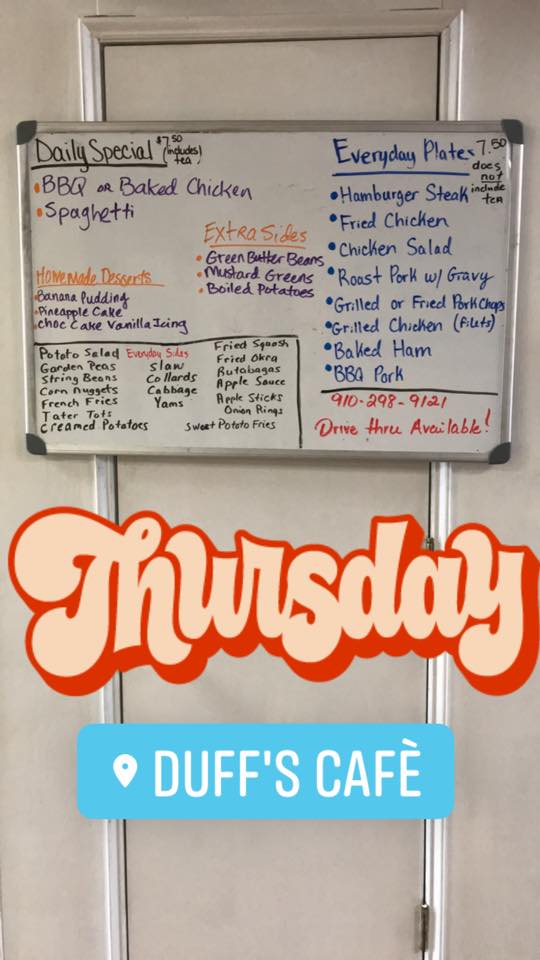 Daily Special $7.50 (includes tea)
BBQ or Baked Chicken
Spaghetti
Extra Sides
Green Butter Beans
Mustard Greens
Boiled Potatoes
Homemade Desserts
Banana Pudding
Pineapple Cake
Choc Cake Vanilla Icing
Everyday Sides
Potato Salad
Garden Peas
String Beans
Corn Nuggets
French Fries
Tater Tots
Creamed Potatoes
Slaw
Collards
Cabbage
Yams
Fried Squash
Fried Okra
Rutabagas
Apple Sauce
Apple Sticks
Onion Rings
Sweet Potato Fries
Everyday Plates 7.50
does not include tea
Hamburger Steak
Fried Chicken
Chicken Salad
Roast Pork w/ Gravy
Grilled or Fried Pork Chops
Grilled Chicken (Filets)
Baked Ham
BBQ Pork
910-298-9121
Drive thru Available!
Thursday
DUFF'S CAFÈ